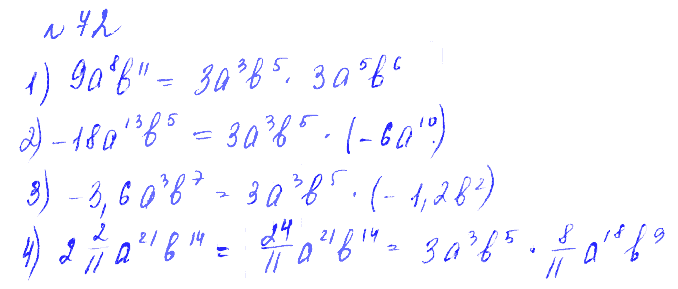 № 72
1) 9a⁸b¹¹ = 3a³b⁵ · 3a⁵b⁶
2) -18a¹³b⁵ = 3a³b⁵ · (-6a¹⁰)
3) -3,6a³b⁷ = 3a³b⁵ · (-1,2b²)
4) 2 2/11 a²¹b¹⁴ = 24/11 a²¹b¹⁴ = 3a³b⁵ · 8/11 a¹⁸b⁹